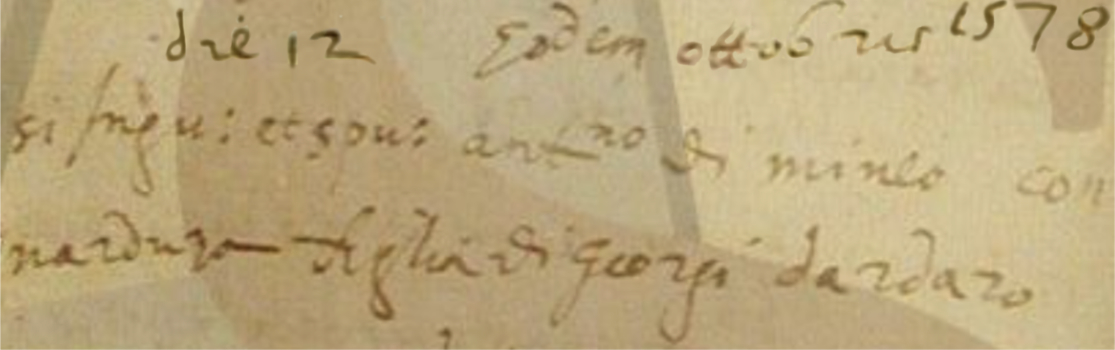 die 12 eodem ottobris 1578
si ingu: et spu: ant.no di mineo con
narduza figlia di Georgi dardaro